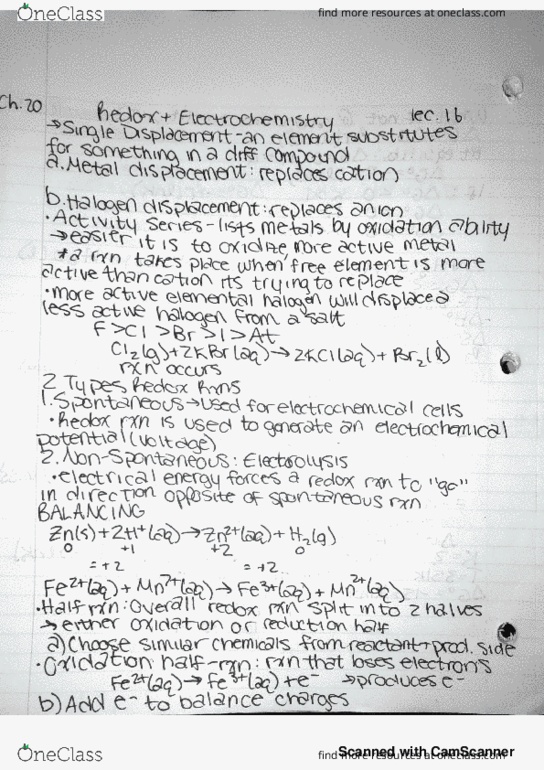 OneClass
find more resources at oneclass.com
Ch.20
Redox + Electrochemistry lec. 16
→Single Displacement-an element substitutes
for something in a diff compound
a. Metal displacement: replaces cation
b. Halogen displacement: replaces anion
•Activity Series-lists metals by oxidation ability
→easier it is to oxidize, more active metal
*a rxn takes place when free element is more
active than cation its trying to replace
•more active elemental halogen will displace a
less active halogen from a salt
F>Cl>Br>I>At
Cl₂(g)+2KBr(aq)→2KCl(aq)+Br₂(l)
rxn occurs
2 Types Redox Rxns
1. Spontaneous→used for electrochemical cells
•Redox rxn is used to generate an electrochemical
potential (voltage)
2. Non-Spontaneous: Electrolysis
•electrical energy forces a redox rxn to "go"
in direction opposite of spontaneous rxn
BALANCING
Zn(s)+2H⁺(aq)→Zn²⁺(aq)+H₂(g)
0 +1 +2 0
=+2 =+2
Fe²⁺(aq)+Mn⁷⁺(aq)→Fe³⁺(aq)+Mn²⁺(aq)
•Half rxn: overall redox rxn split into 2 halves
→either oxidation or reduction half
a) Choose similar chemicals from reactant+prod. side
•Oxidation half-rxn: rxn that loses electrons
Fe²⁺(aq)→Fe³⁺(aq)+e⁻ →produces e⁻
b) Add e⁻ to balance charges
OneClass
find more resources at oneclass.com
Scanned with CamScanner